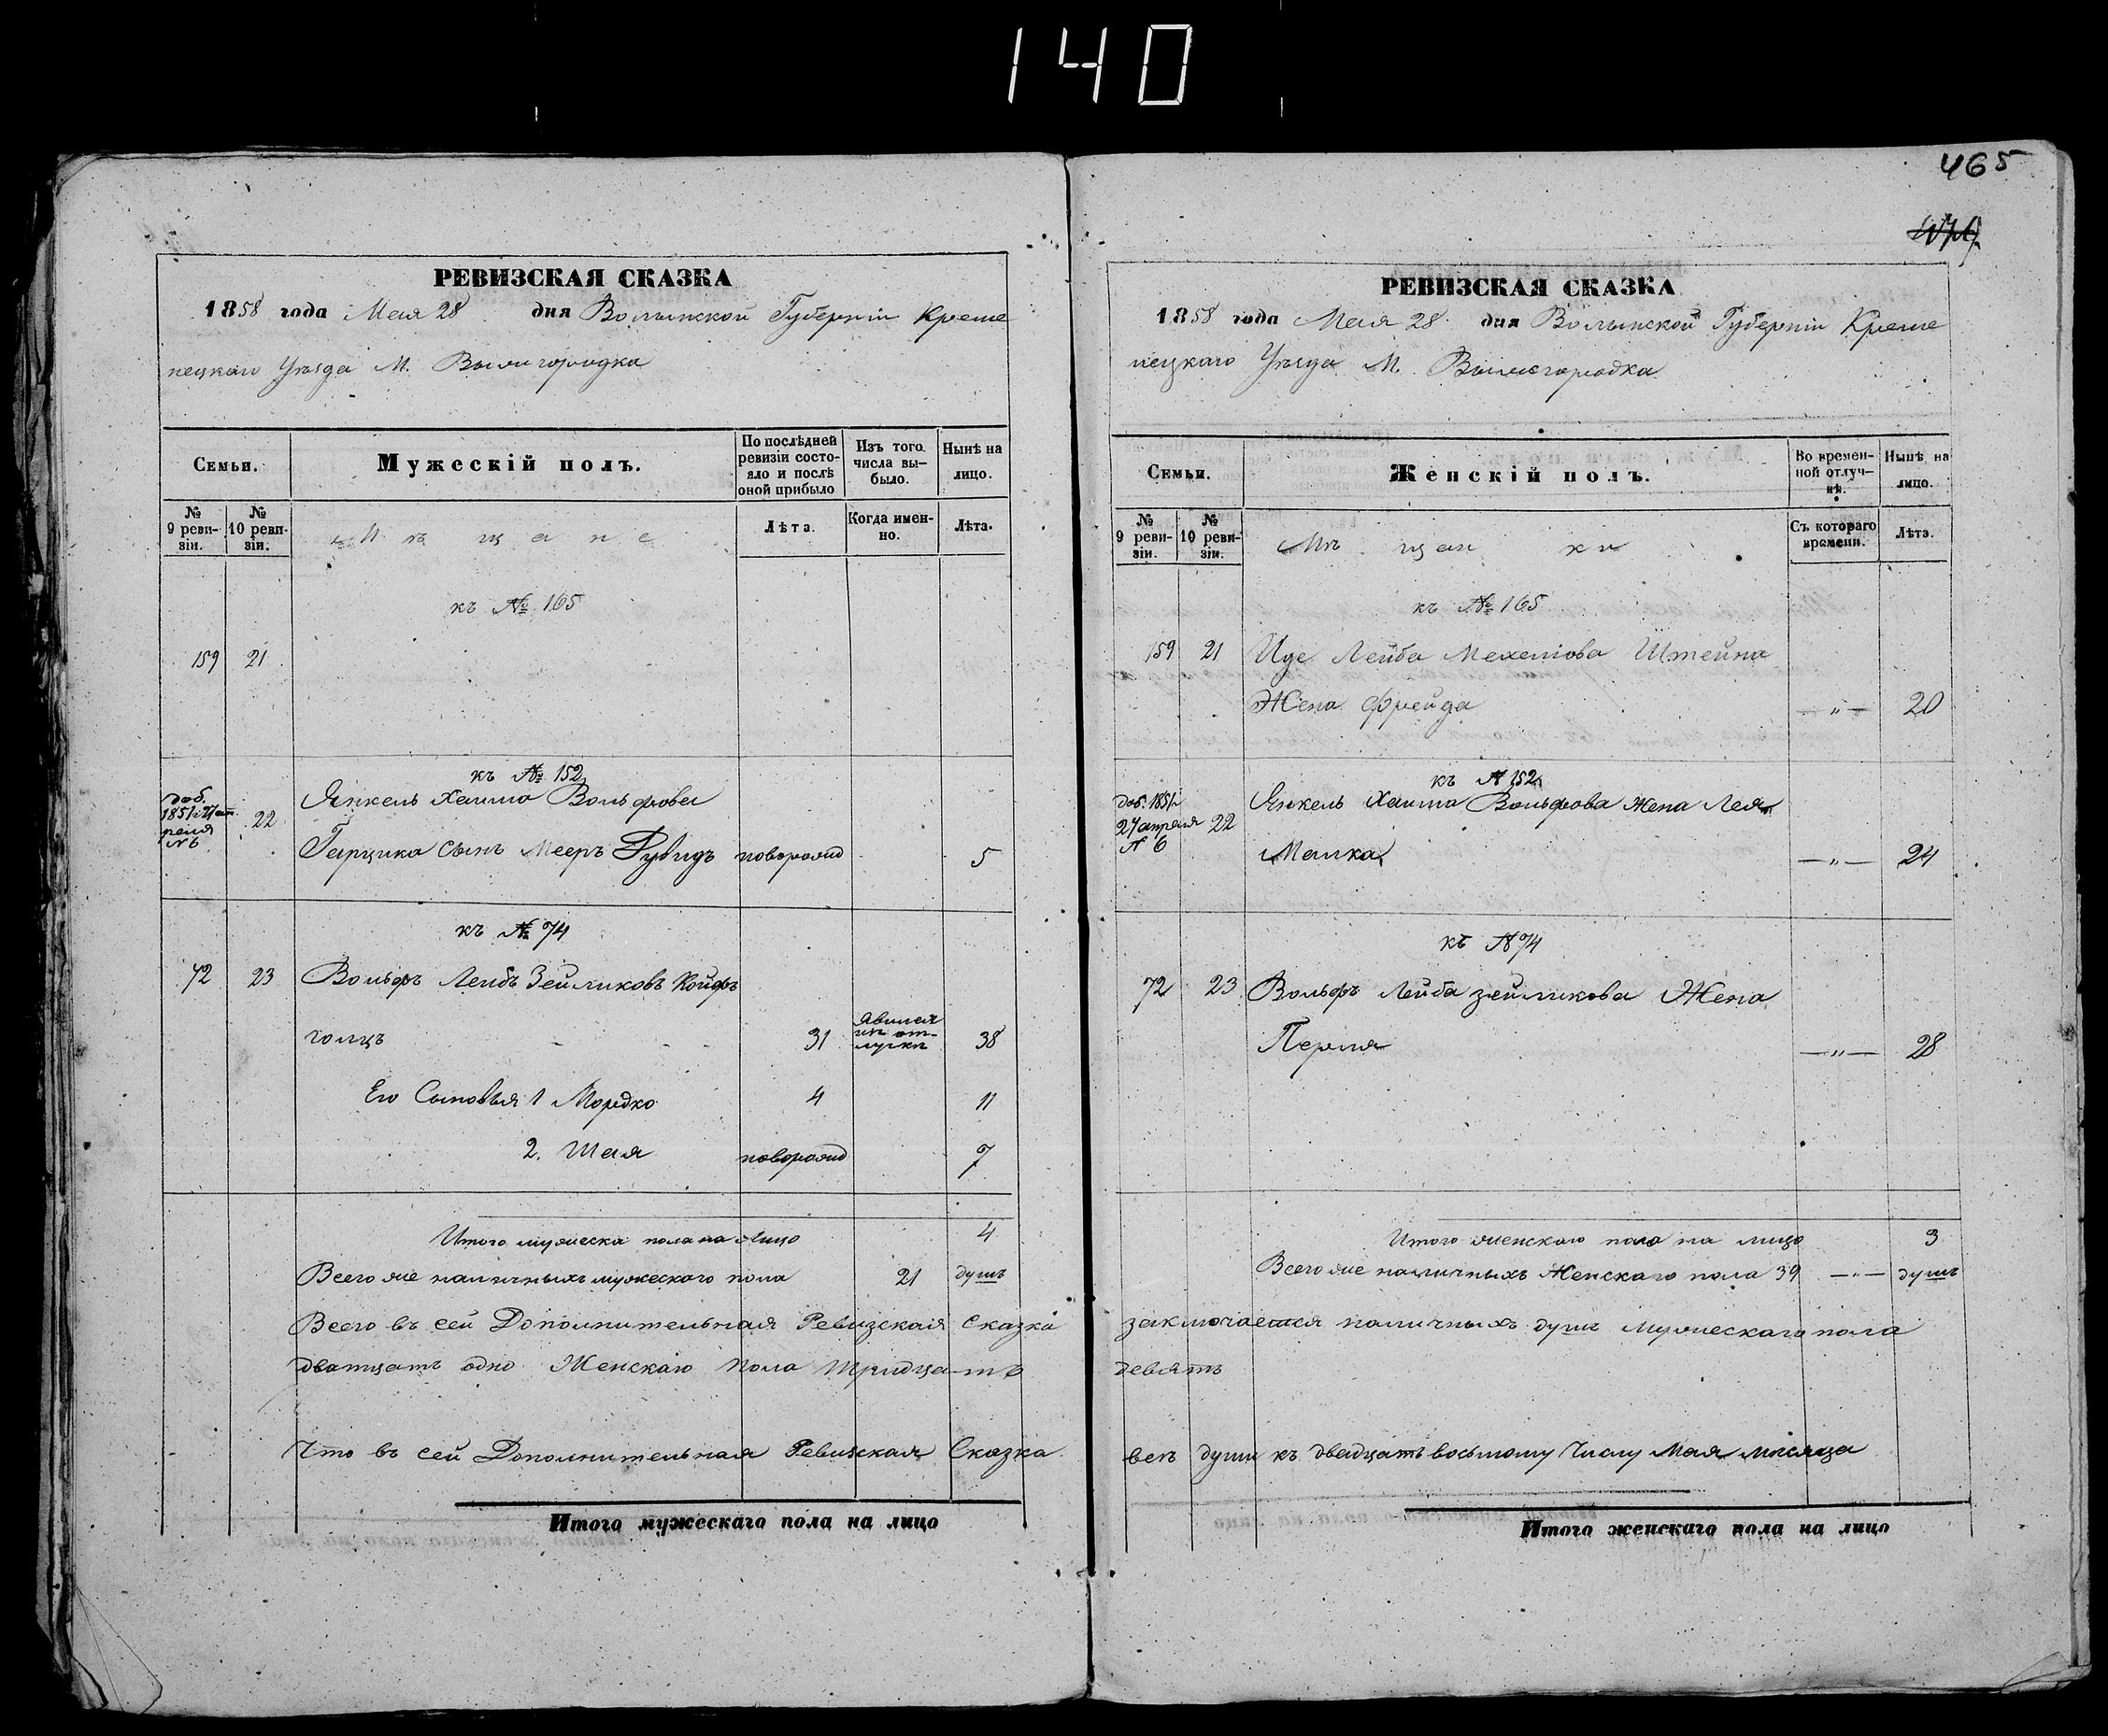 140
465
РЕВИЗСКАЯ СКАЗКА
1858 года Мая 28 дня Волынской Губерніи Креме
нецкаго Уѣзда М. Вышгородка
Семьи.
Мужескій полъ.
По послѣдней ревизіи состояло и послѣ оной прибыло
Изъ того числа выбыло.
Нынѣ на лицо.
№ 9 ревизіи.
№ 10 ревизіи.
Мѣщане
Лѣта.
Когда именно.
Лѣта.
къ № 165
159 21
къ № 152
доб. 1851 г. 27 апреля № 6
22
Янкель Хаима Вольфова
Герцика сынъ Мееръ Дувидъ новорожд 5
къ № 74
72 23 Вольфъ Лейбъ Зейликовъ Койфъ
голцъ 31 Явился изъ отлучки 38
Его Сыновья 1 Мордко 4 11
2. Шая новорожд 7
Итого мужеска пола на лицо 4
Всего же наличныхъ мужескаго пола 21 душъ
Всего въ сей Дополнительная Ревизская Сказка
дватцать одно Женскаго пола тридцать
Что въ сей Дополнительная Ревизская Сказка
Итого мужескаго пола на лицо
РЕВИЗСКАЯ СКАЗКА
1858 года Мая 28 дня Волынской Губерніи Креме
нецкаго Уѣзда М. Вышгородка
Семьи.
Женскій полъ.
Во временной отлучкѣ.
Нынѣ на лицо.
№ 9 ревизіи.
№ 10 ревизіи.
Мѣщанки
Съ котораго времени.
Лѣта.
къ № 165
159 21 Иде Лейба Мехелiова Штейна
Жена Фрейда — " — 20
къ № 152
доб. 1851 г. 27 апреля № 6
22
Янкель Хаима Вольфова жена Лея
Малка — " — 24
къ № 74
72 23 Вольфъ Лейба Зейликова Жена
Перля — " — 28
Итого женскаго пола на лицо 3
Всего же наличныхъ Женскаго пола 39 — " — душъ
заключается наличныхъ душъ мужескаго пола
девять
всѣ души къ двадцать восьмому числу Мая мѣсяца
Итого женскаго пола на лицо